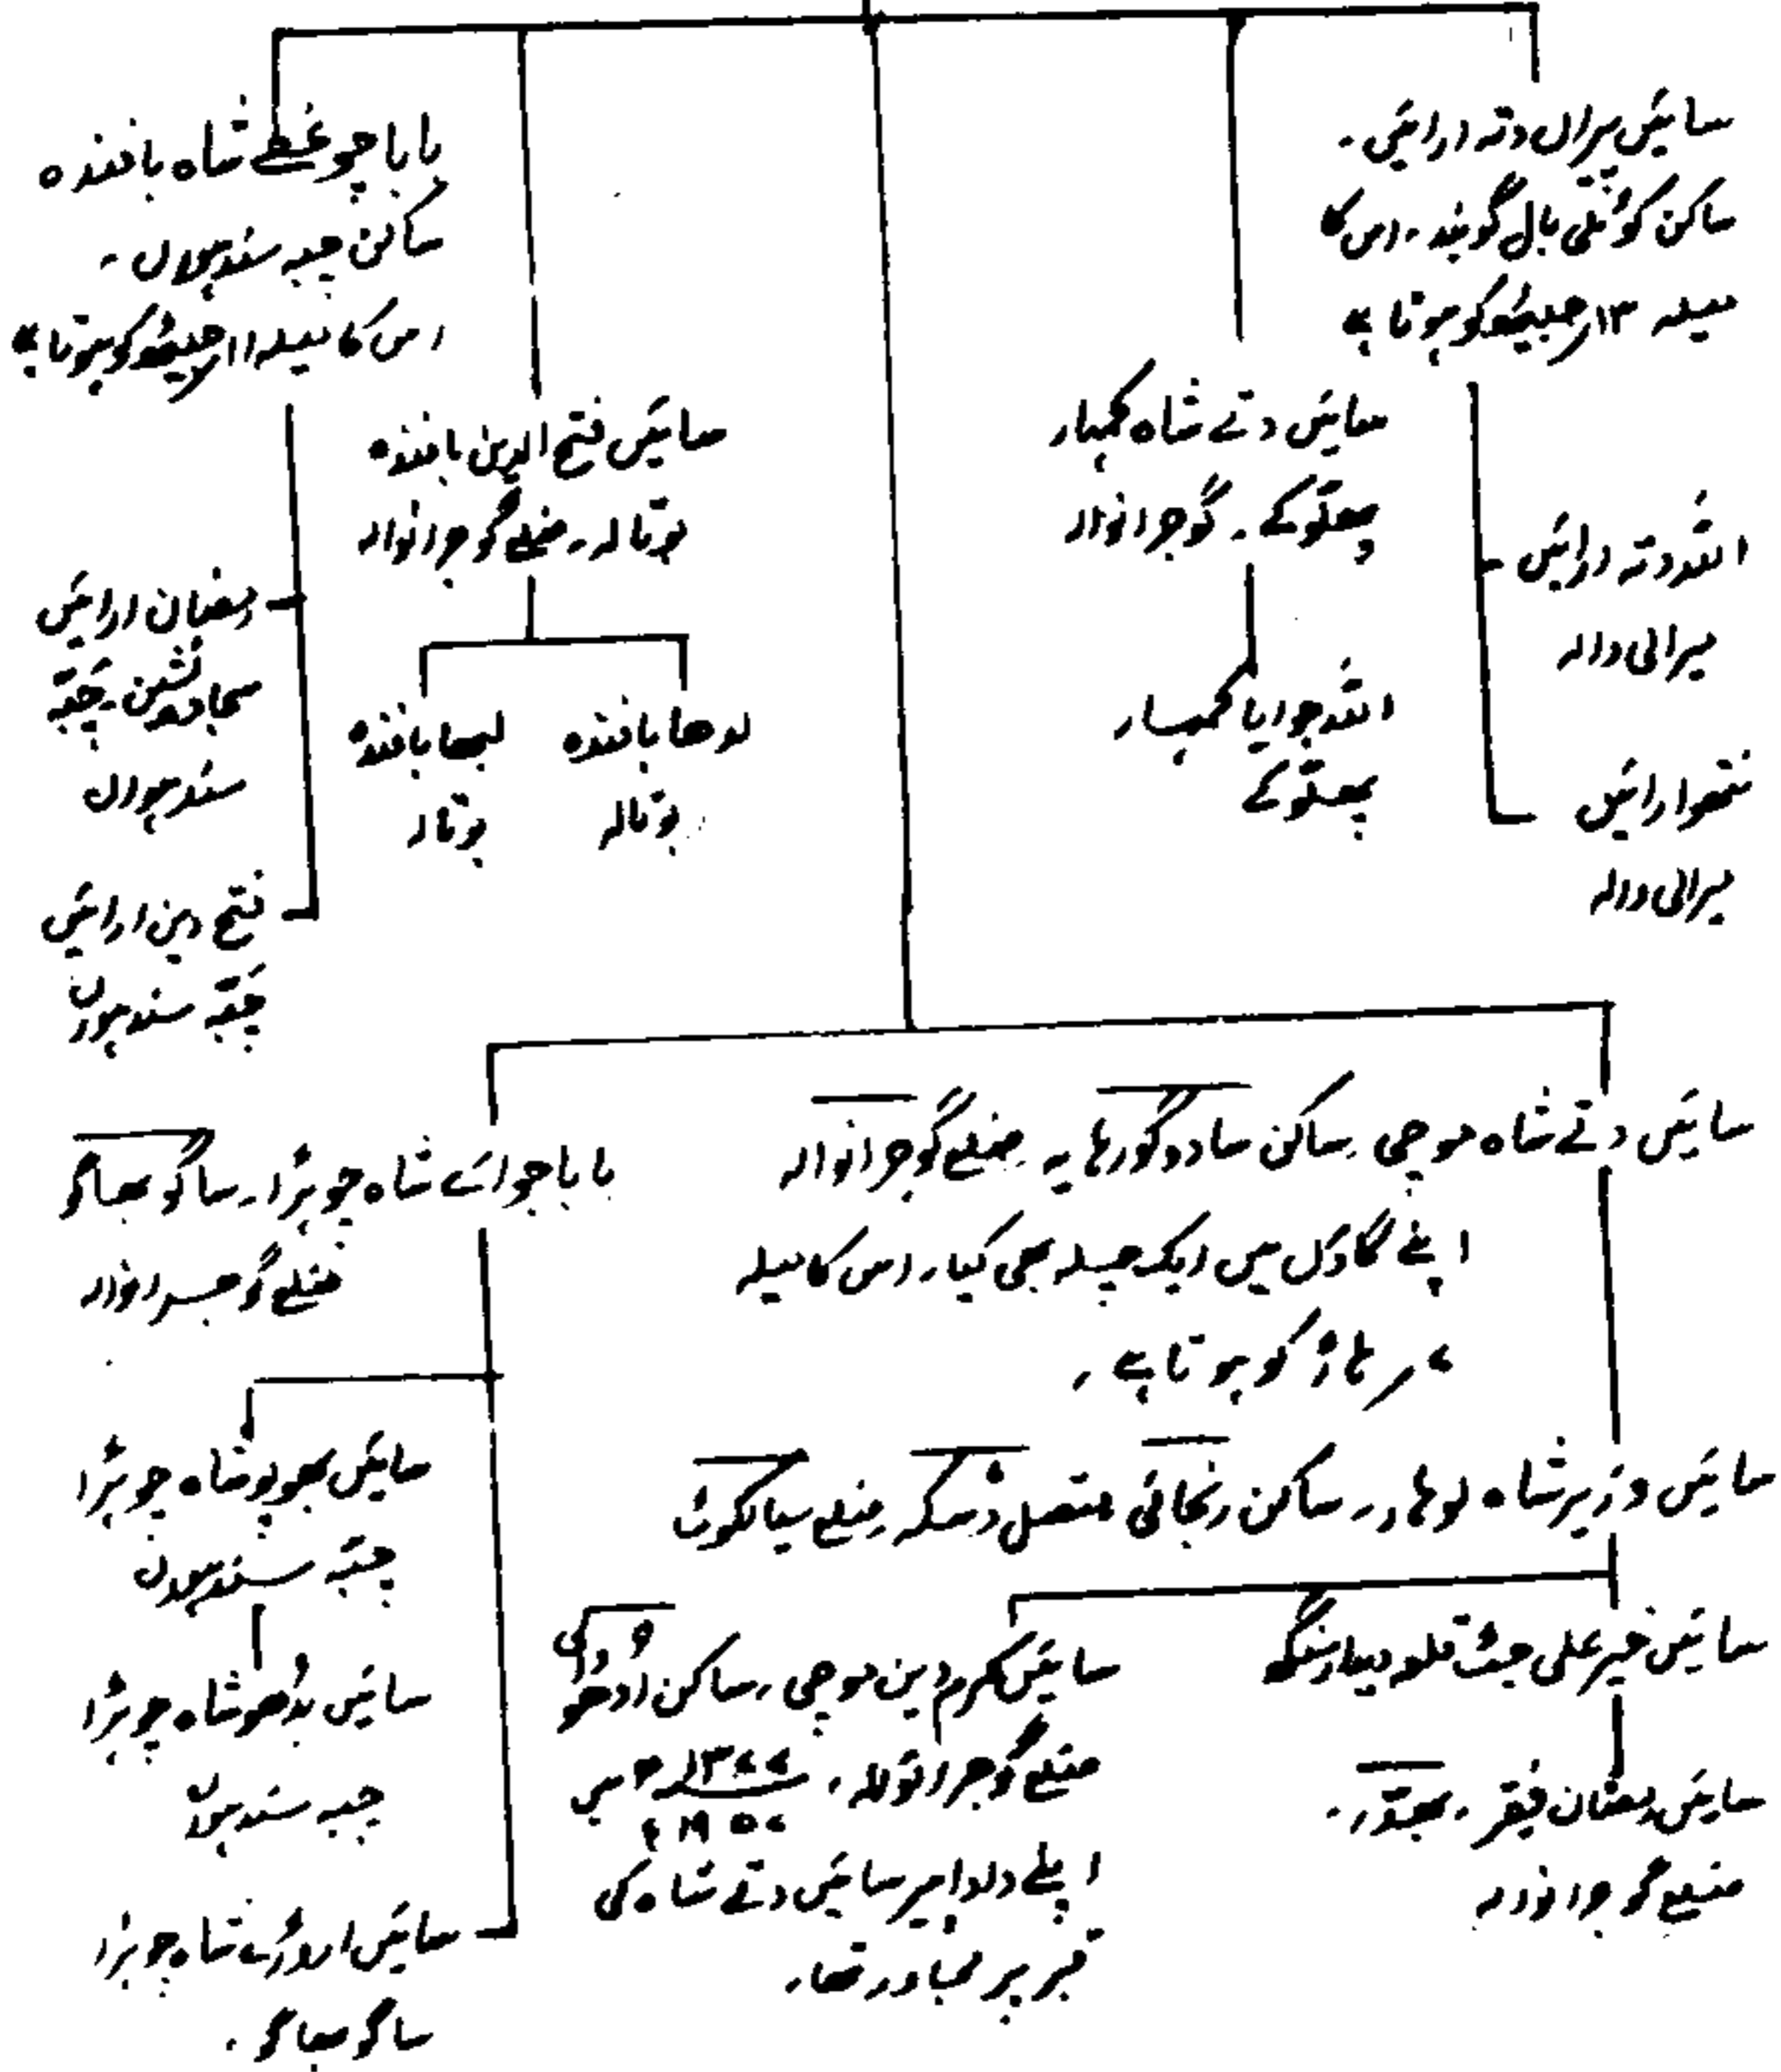 سائیں پیراں دتہ ارائیں۔
ساکن کوٹلی بال گوبند۔ اس کا
میلہ ۱۳ر جیٹھ کو ہوتا ہے
اللہ دتہ ارائیں
میرالی والہ
نتھو ارائیں
میرالی والہ
سائیں دتے شاہ کمہار
گوجرانوالہ
اللہ جوایا کمہار
سائیں فتح الدین بافندہ
بوتالہ۔ ضلع گوجرانوالہ
لدھا بافندہ
بوتالہ
لبھا بافندہ
بوتالہ
بابا چوغطے شاہ بافندہ
ساکن چبہ سندہواں۔
اس کا میلہ ۱۱ر جیٹھ کو ہوتا ہے
رمضان ارائیں
سجادہ نشین۔ چبّہ
سندہواں
فتح دین ارائیں
چبّہ سندہواں
سائیں دتے شاہ موچی۔ ساکن سادوگورہایہ۔ ضلع گوجرانوالہ
اپنے گاؤں میں ایک چلہ بھی کیا۔ اس کا میلہ
۷ر ہاڑ کو ہوتا ہے۔
سائیں وزیر شاہ لوہار۔ ساکن رنجائی متصل ڈسکہ ضلع سیالکوٹ
سائیں خیر علی جٹ قلعہ دیدار سنگھ
سائیں رمضان فقیر۔
ضلع گوجرانوالہ
سائیں کرم دین موچی، ساکن
ضلع گوجرانوالہ، ۱۳۷۷ھ میں
۱۹۵۷ء
اپنے دادا پیر سائیں دتے شاہ کی
قبر پر مجاور تھا۔
بابا جوائے شاہ چوہڑا۔ ساگو بھاگو
ضلع گوجرانوالہ
سائیں بھوپو شاہ چوہڑا
چبّہ سندہواں
سائیں بڈھو شاہ چوہڑا
چبہ سندہواں
سائیں اروڑے شاہ چوہڑا
ساگو بھاگو۔